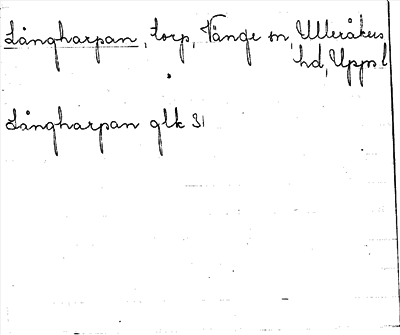 Långharpan, torp, Vänge sn, Ulleråkers
hd, Uppsl
Långharpan glk 31